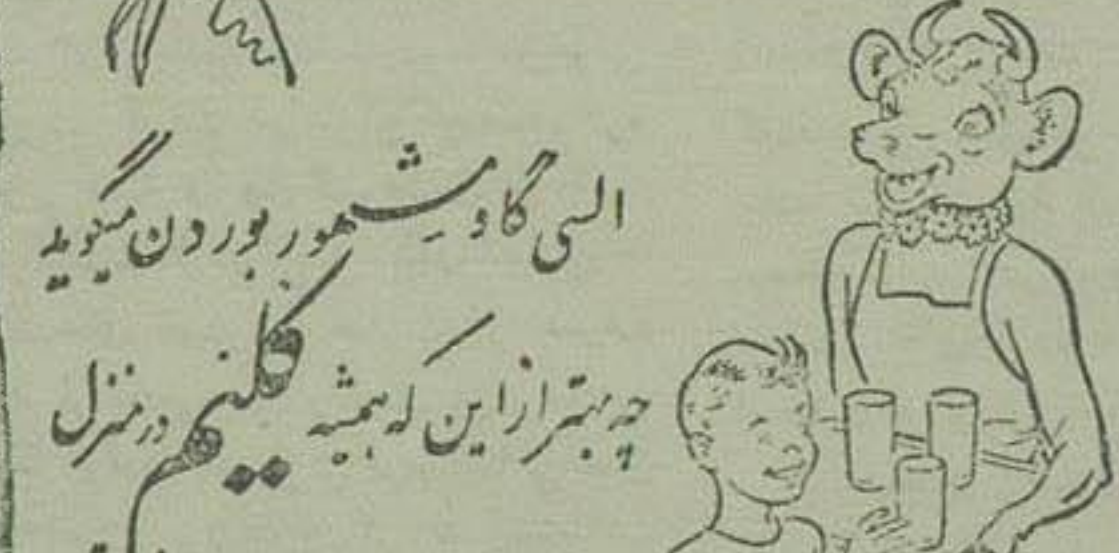 السی گاو مشهور بوردن میگوید
چه بهتر از این که همیشه کلیم در منزل